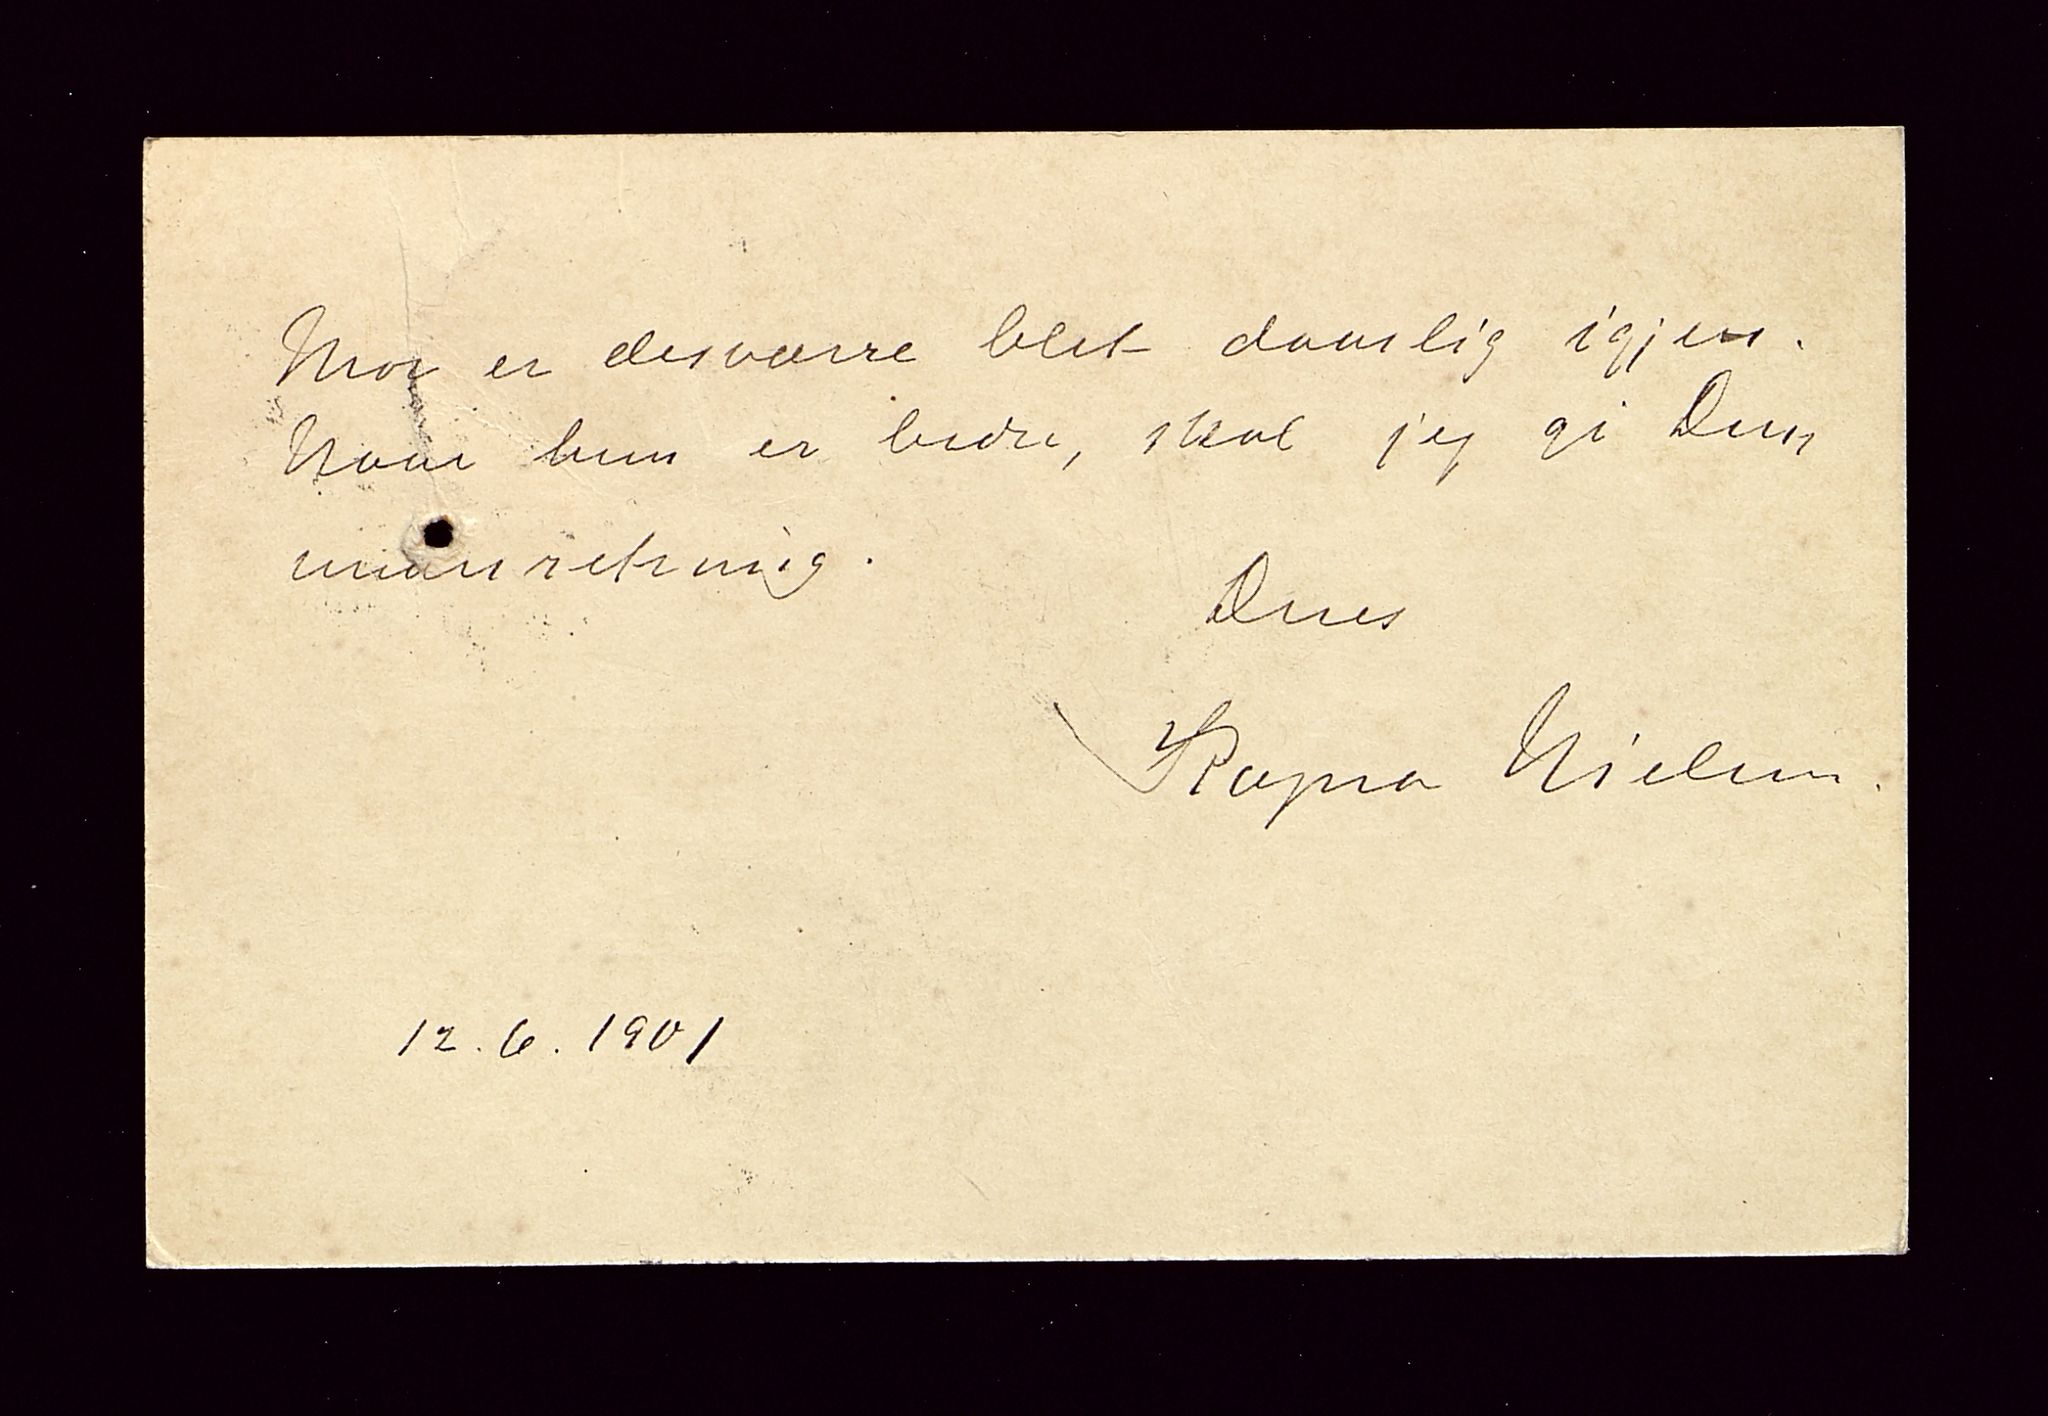 Mor er desværre blet daarlig igjen.
Naar hun er bedre, skal jeg gi Dem
underretning.
Deres
Ragna Nielsen.
12. 6. 1901